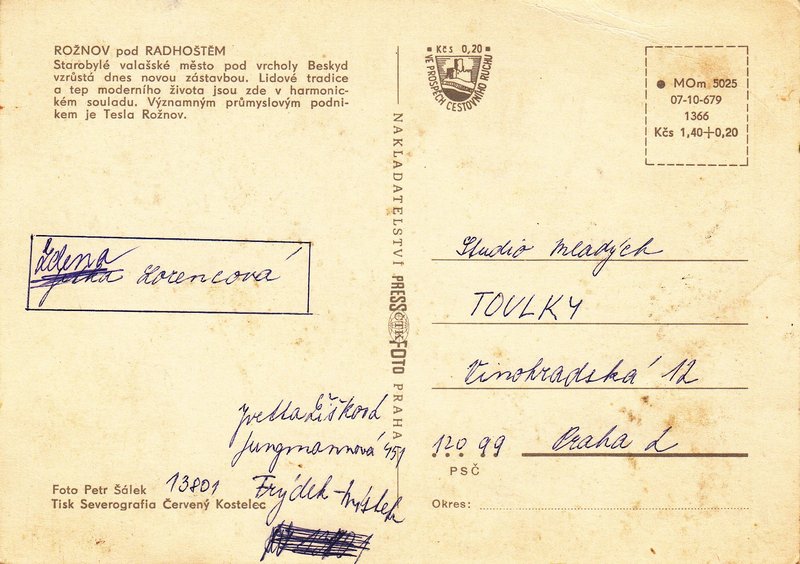 ROŽNOV pod RADHOŠTĚM
Starobylé valašské město pod vrcholy Beskyd
vzrůstá dnes novou zástavbou. Lidové tradice
a tep moderního života jsou zde v harmonic-
kém souladu. Významným průmyslovým podni-
kem je Tesla Rožnov.
Kčs 0,20
VE PROSPĚCH CESTOVNÍHO RUCHU
MOm 5025
07-10-679
1366
Kčs 1,40+0,20
NAKLADATELSTVÍ PRESSFOTO PRAHA
ČTK
Zdena
Lorencová
Studio Mladých
TOULKY
Vinohradská 12
120 99 Praha 2
PSČ
Okres:
Ivetta Žišková
Jungmannová 451
13801 Frýdek-Místek
Foto Petr Šálek
Tisk Severografia Červený Kostelec